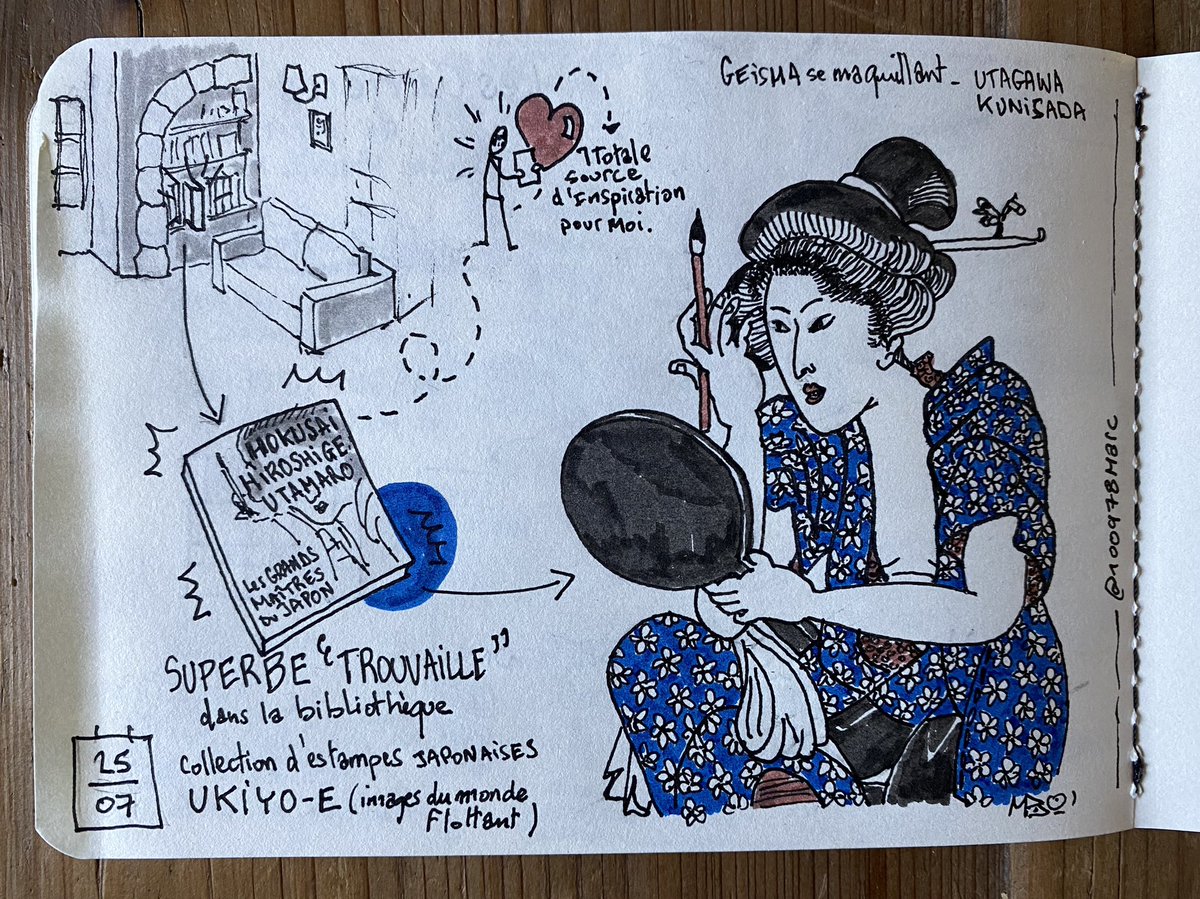 GEiSHA se maquillant - UTAGAWA
KUNISADA
1 Totale
source
d'Inspiration
pour Moi.
HOKUSAI
HIROSHIGE
UTAMARO
Les GRANDS
MAÎTRES
DU JAPON
SUPERBE "TROUVAILLE"
dans la bibliothèque
Collection d'estampes JAPONAISES
UKIYO-E (images du monde
Flottant)
25
07